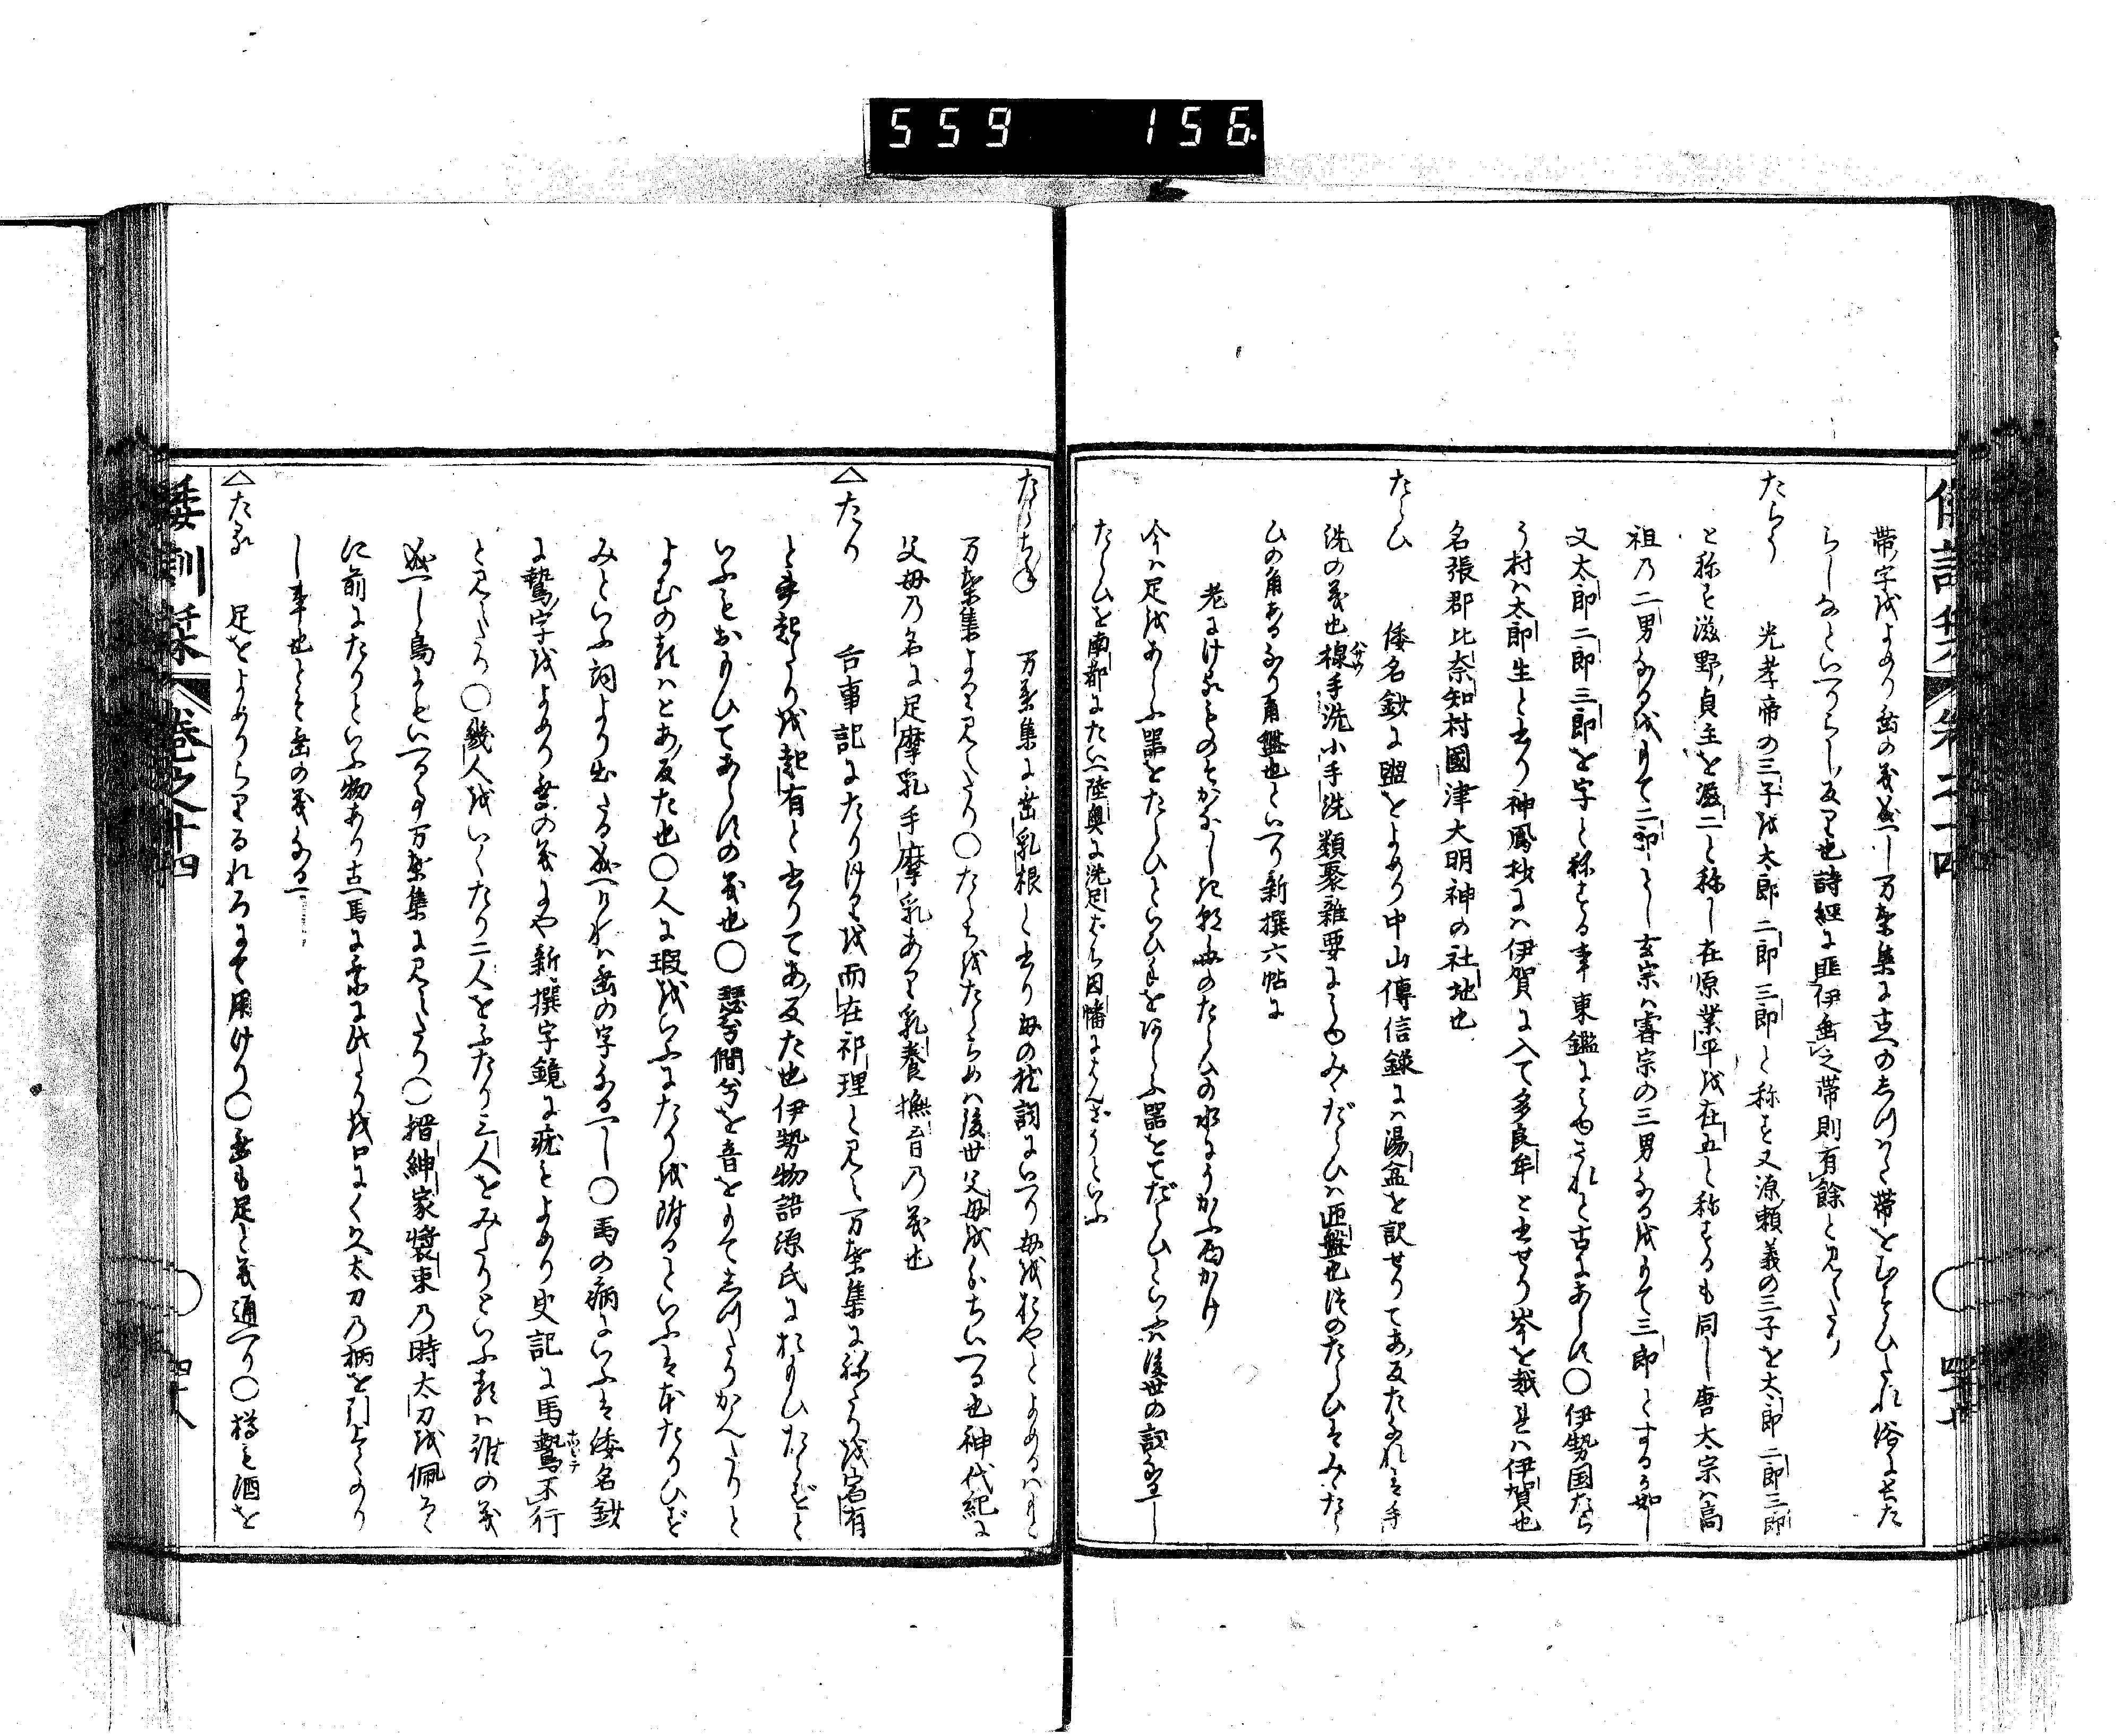 559 156
帯字をよめり垂の義成へし万葉集に古への志つはた帯をむすひたれ俗に長た
らしなといへりらし反り也詩経に匪伊垂之帯則有餘と見えたり
たらう 光孝帝の三子を太郎二郎三郎と称す又源頼義の三子を太郎二郎三郎
と称す滋野貞主を滋二と称し在原業平を在五と称するも同し唐太宗は高
祖乃二男なるをもて二郎とし玄宗は睿宗の三男なるをもて三郎とするか如し
又太郎二郎三郎を字と称する事東鑑にみゆされと古にあらす○伊勢国たら
う村は太郎生と書り神鳳抄には伊賀に入て多良牟と書せり岑を越れは伊賀也
名張郡比奈知村國津大明神の社地也
たらひ 倭名鈔に盥をよめり中山傳信録には湯盆を訳せりてあ反たなれは手
洗の義也楾手洗小手洗類聚雑要にみゆみゝだらひは匜盤也つのたらひはみゝたら
ひの角あるなり角盥也といへり新撰六帖に
今は足をあらふ器をたらひといひ手をあらふ器をてだらひといふは後世の詞なるへし
たらひを南都にたらへ陸奥に洗足だらひ因幡にはんぞうといふ
たらちね 万葉集に垂乳根と書り母の枕詞にいへり母をおやとよめるはすへて
万葉集よりみえたり○たらちをたらちめは後世父母をわかちいへる也神代紀に
父母乃名に足摩乳手摩乳あり乳養撫育乃義也
△たり 古事記にたりけりを而在祁理と見え万葉集にねたりを宿有
と書起たりを起有と書りてあ反た也伊勢物語源氏におもひたらずと
いふもおもひてあらすの義也○瑟兮僩兮を音をもて志つたりかんたりと
よむの類はとあ反た也○人に瑕をいふにたりを附るといふはあたりひず
みといふ詞より出たる成へけれは垂の字なるへし○馬の病にいふは倭名鈔
に驇字をよめり垂の義にや新撰字鏡に疣をよめり史記に馬驇不行
と見えたり○幾人をいくたり二人をふたり三人をみたりといふ類は誰の義
成へし鳥にもいへる事万葉集に見えたり○搢紳家装束乃時太刀を佩はく
に前にたりといふ物あり古へ馬に乗に此たりを口にくはへ太刀乃柄を引上てのり
し事也とそ垂の義なるへし
△たる 足をよめりらりるれろにて用けり○垂も足と義通へり○樽は酒を
倭訓栞 巻之十四 四十八